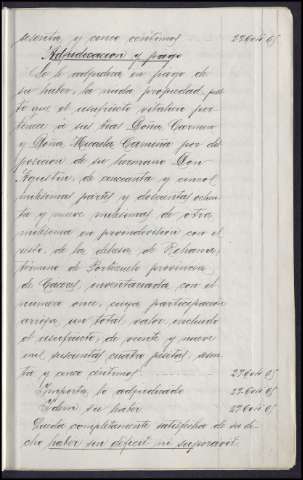 sesenta, y cinco centimos
Adjudicacion y pago
Se le adjudica en pago de
su haber, la nuda propiedad, pues
to que el usufructo vitalicio per
tenece á sus tias Doña Carmen
y Doña Micaela Carmina por dis
posicion de su hermano Don
Agustin, de cincuenta y cinco
milesimas partes y doscientas ochen
ta y nueve milesimas de otra
milesima en proindivision con el
resto de la dehesa, de
termino de Portezuelo provincia
de Caceres, inventariada con el
numero once, cuya participacion
arroja, un total valor, excluido
el usufructo, de veinte y nueve
mil seiscientas cuatro pesetas, sesen
ta y cinco centimos
Importa lo adjudicado
Idem su haber
Queda completamente satisfecha de su di
cho haber sin deficit ni superavit.